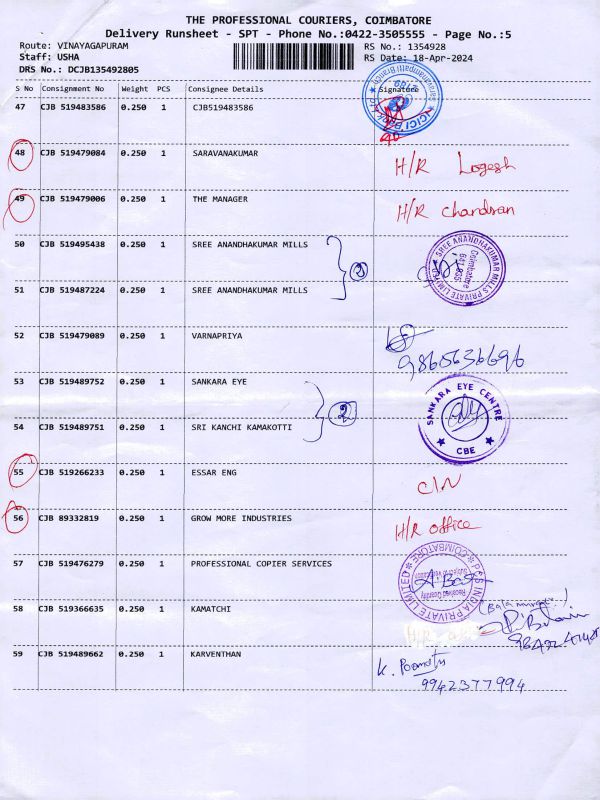 THE PROFESSIONAL COURIERS, COIMBATORE
Delivery Runsheet - SPT - Phone No.:0422-3505555 - Page No.:5
Route: VINAYAGAPURAM RS No.: 1354928
Staff: USHA RS Date: 18-Apr-2024
DRS No.: DCJB135492805
S No Consignment No Weight PCS Consignee Details Signature
47 CJB 519483586 0.250 1 CJB519483586
ICICI
48 CJB 519479084 0.250 1 SARAVANAKUMAR H/R Logesh
49 CJB 519479006 0.250 1 THE MANAGER H/R chandran
50 CJB 519495438 0.250 1 SREE ANANDHAKUMAR MILLS
2
SREE ANANDHAKUMAR MILLS PRIVATE LIMITED
Coimbatore
51 CJB 519487224 0.250 1 SREE ANANDHAKUMAR MILLS
52 CJB 519479089 0.250 1 VARNAPRIYA
9865636696
53 CJB 519489752 0.250 1 SANKARA EYE
2
SANKARA EYE CENTRE
CBE
54 CJB 519489751 0.250 1 SRI KANCHI KAMAKOTTI
55 CJB 519266233 0.250 1 ESSAR ENG CIN
56 CJB 89332819 0.250 1 GROW MORE INDUSTRIES H/R office
57 CJB 519476279 0.250 1 PROFESSIONAL COPIER SERVICES
PCS INDIA PRIVATE LIMITED
COIMBATORE
58 CJB 519366635 0.250 1 KAMATCHI
59 CJB 519489662 0.250 1 KARVENTHAN
9942377994